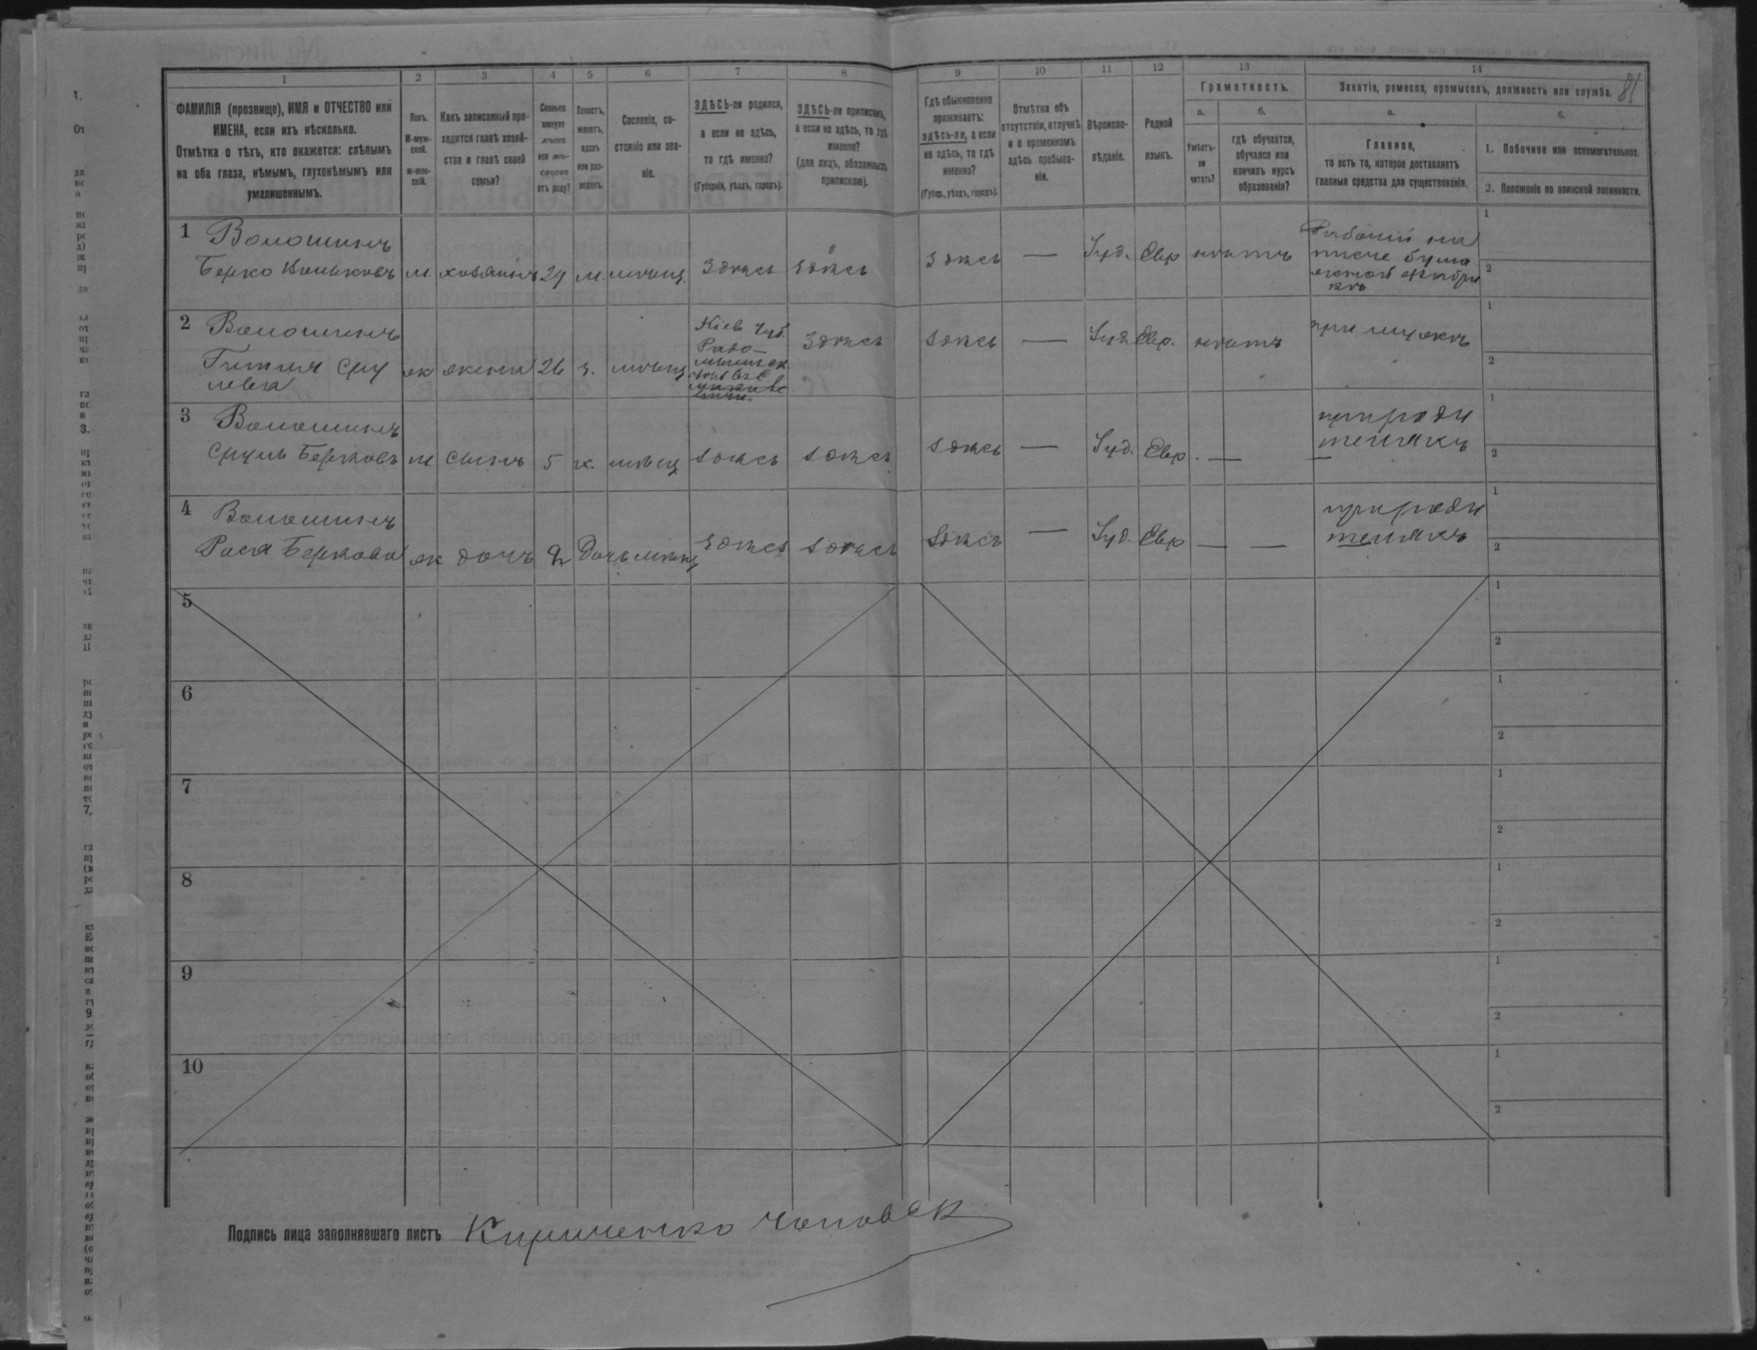 1 2 3 4 5 6 7 8 9 10 11 12 13 14
81
ФАМИЛІЯ (прозвище), ИМЯ и ОТЧЕСТВО или
ИМЕНА, если ихъ нѣсколько.
Отмѣтка о тѣхъ, кто окажется: слѣпымъ
на оба глаза, нѣмымъ, глухонѣмымъ или
умалишеннымъ.
Полъ.
М-муж-
ской.
ж-жен-
скій.
Какъ записанный при-
ходится главѣ хозяй-
ства и главѣ своей
семьи?
Сколько
минуло
лѣтъ
или мѣ-
сяцевъ
отъ роду?
Холостъ,
женатъ,
вдовъ
или раз-
веденъ.
Сословіе, со-
стояніе или зва-
ніе.
ЗДѢСЬ-ли родился,
а если не здѣсь,
то гдѣ именно?
(Губернія, уѣздъ, городъ).
ЗДѢСЬ-ли приписанъ,
а если не здѣсь, то гдѣ
именно?
(для лицъ, обязанныхъ
припискою).
Гдѣ обыкновенно
проживаетъ:
здѣсь-ли, а если
не здѣсь, то гдѣ
именно?
(Губерн., уѣздъ, городъ).
Отмѣтка объ
отсутствіи, отлучкѣ
и о временномъ
здѣсь пребыва-
ніи.
Вѣроиспо-
вѣданіе.
Родной
языкъ.
Грамотность.
а.
Умѣетъ-
ли
читать?
б.
гдѣ обучается,
обучался или
кончилъ курсъ
образованія?
Занятіе, ремесло, промыселъ, должность или служба.
а.
Главное,
то есть то, которое доставляетъ
главныя средства для существованія.
б.
1. Побочное или вспомогательное.
2. Положеніе по воинской повинности.
1 Волошинъ
Берко м хозяинъ 29 м. мѣщ. Здѣсь Здѣсь Здѣсь — Іуд. Евр нѣтъ
Рабочій на
писче бума
жной фабри
кѣ
1
2
2 Волошинъ
Сру
лева ж жена 26 з. мѣщ
Кіев губ.
Радо-
Здѣсь Здѣсь — Іуд Евр. нѣтъ при мужѣ
1
2
3 Волошинъ
Сруль Берковъ м сынъ 5 х. мѣщ Здѣсь Здѣсь Здѣсь — Іуд. Евр. —
при роди
теляхъ
1
2
4 Волошинъ
Рася Беркова ж дочь 2 дочь мѣщ Здѣсь Здѣсь Здѣсь — Іуд. Евр — —
при роди
теляхъ
1
2
5 1
2
6 1
2
7 1
2
8 1
2
9 1
2
10 1
2
Подпись лица заполнявшаго листъ Кириченко